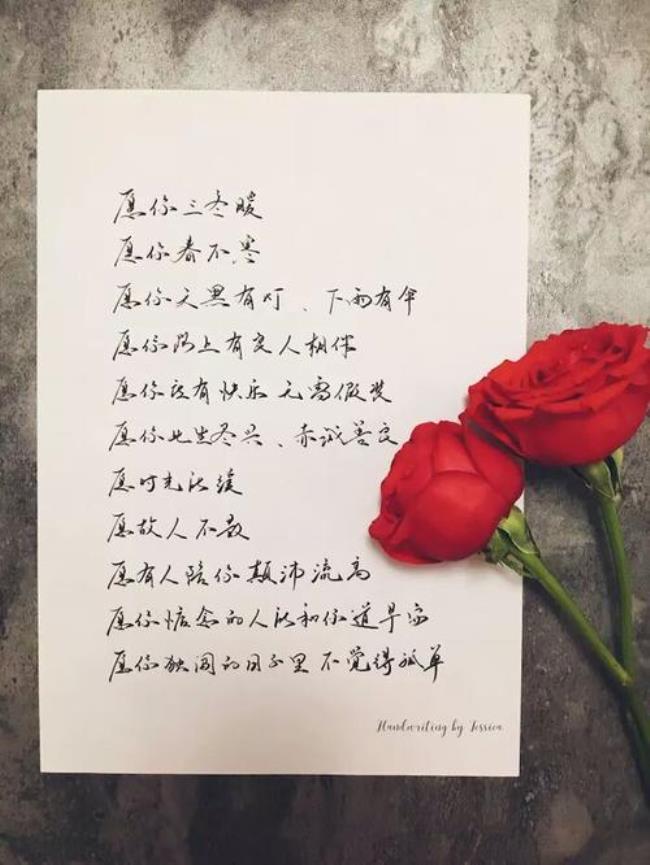 愿你三冬暖
愿你春不寒
愿你天黑有灯、下雨有伞
愿你路上有良人相伴
愿你没有快乐无需假装
愿你此生尽兴、赤诚善良
愿时光能缓
愿故人不散
愿有人陪你颠沛流离
愿你惦念的人能和你道早安
愿你独闯的日子里不觉得孤单
Handwriting by Jessica